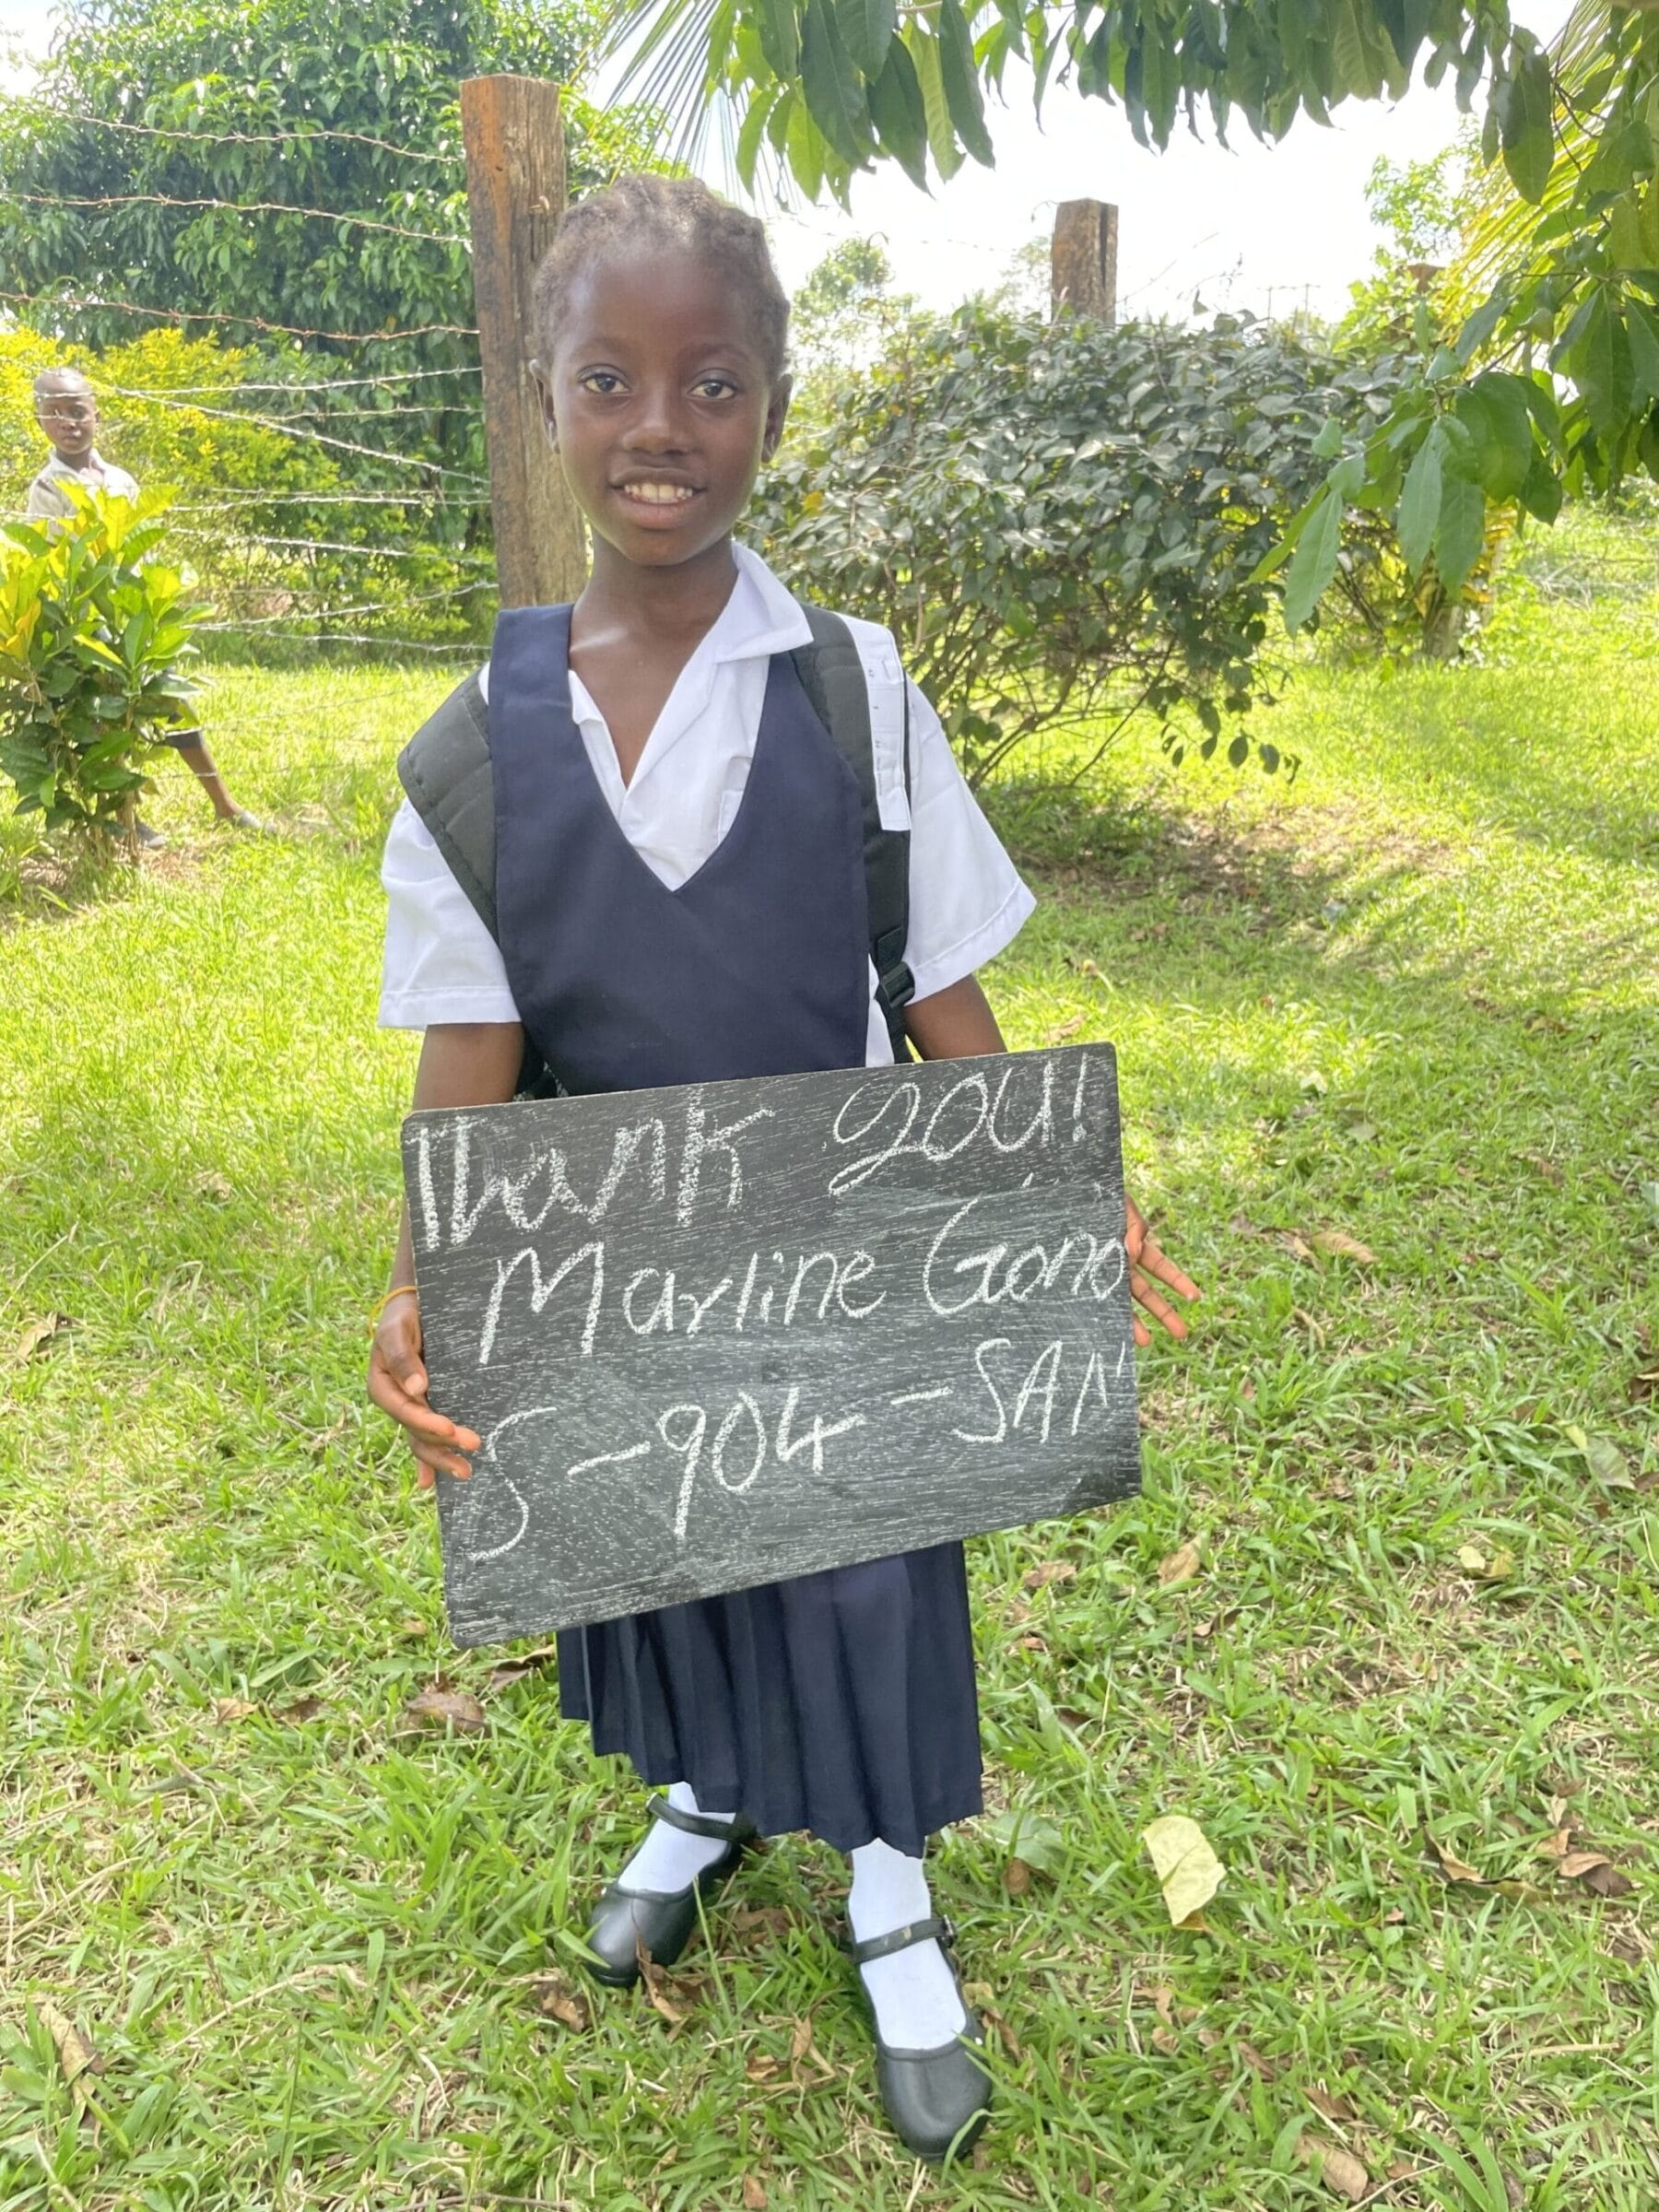 Thank you!
Marline Gono
S-904-SAN